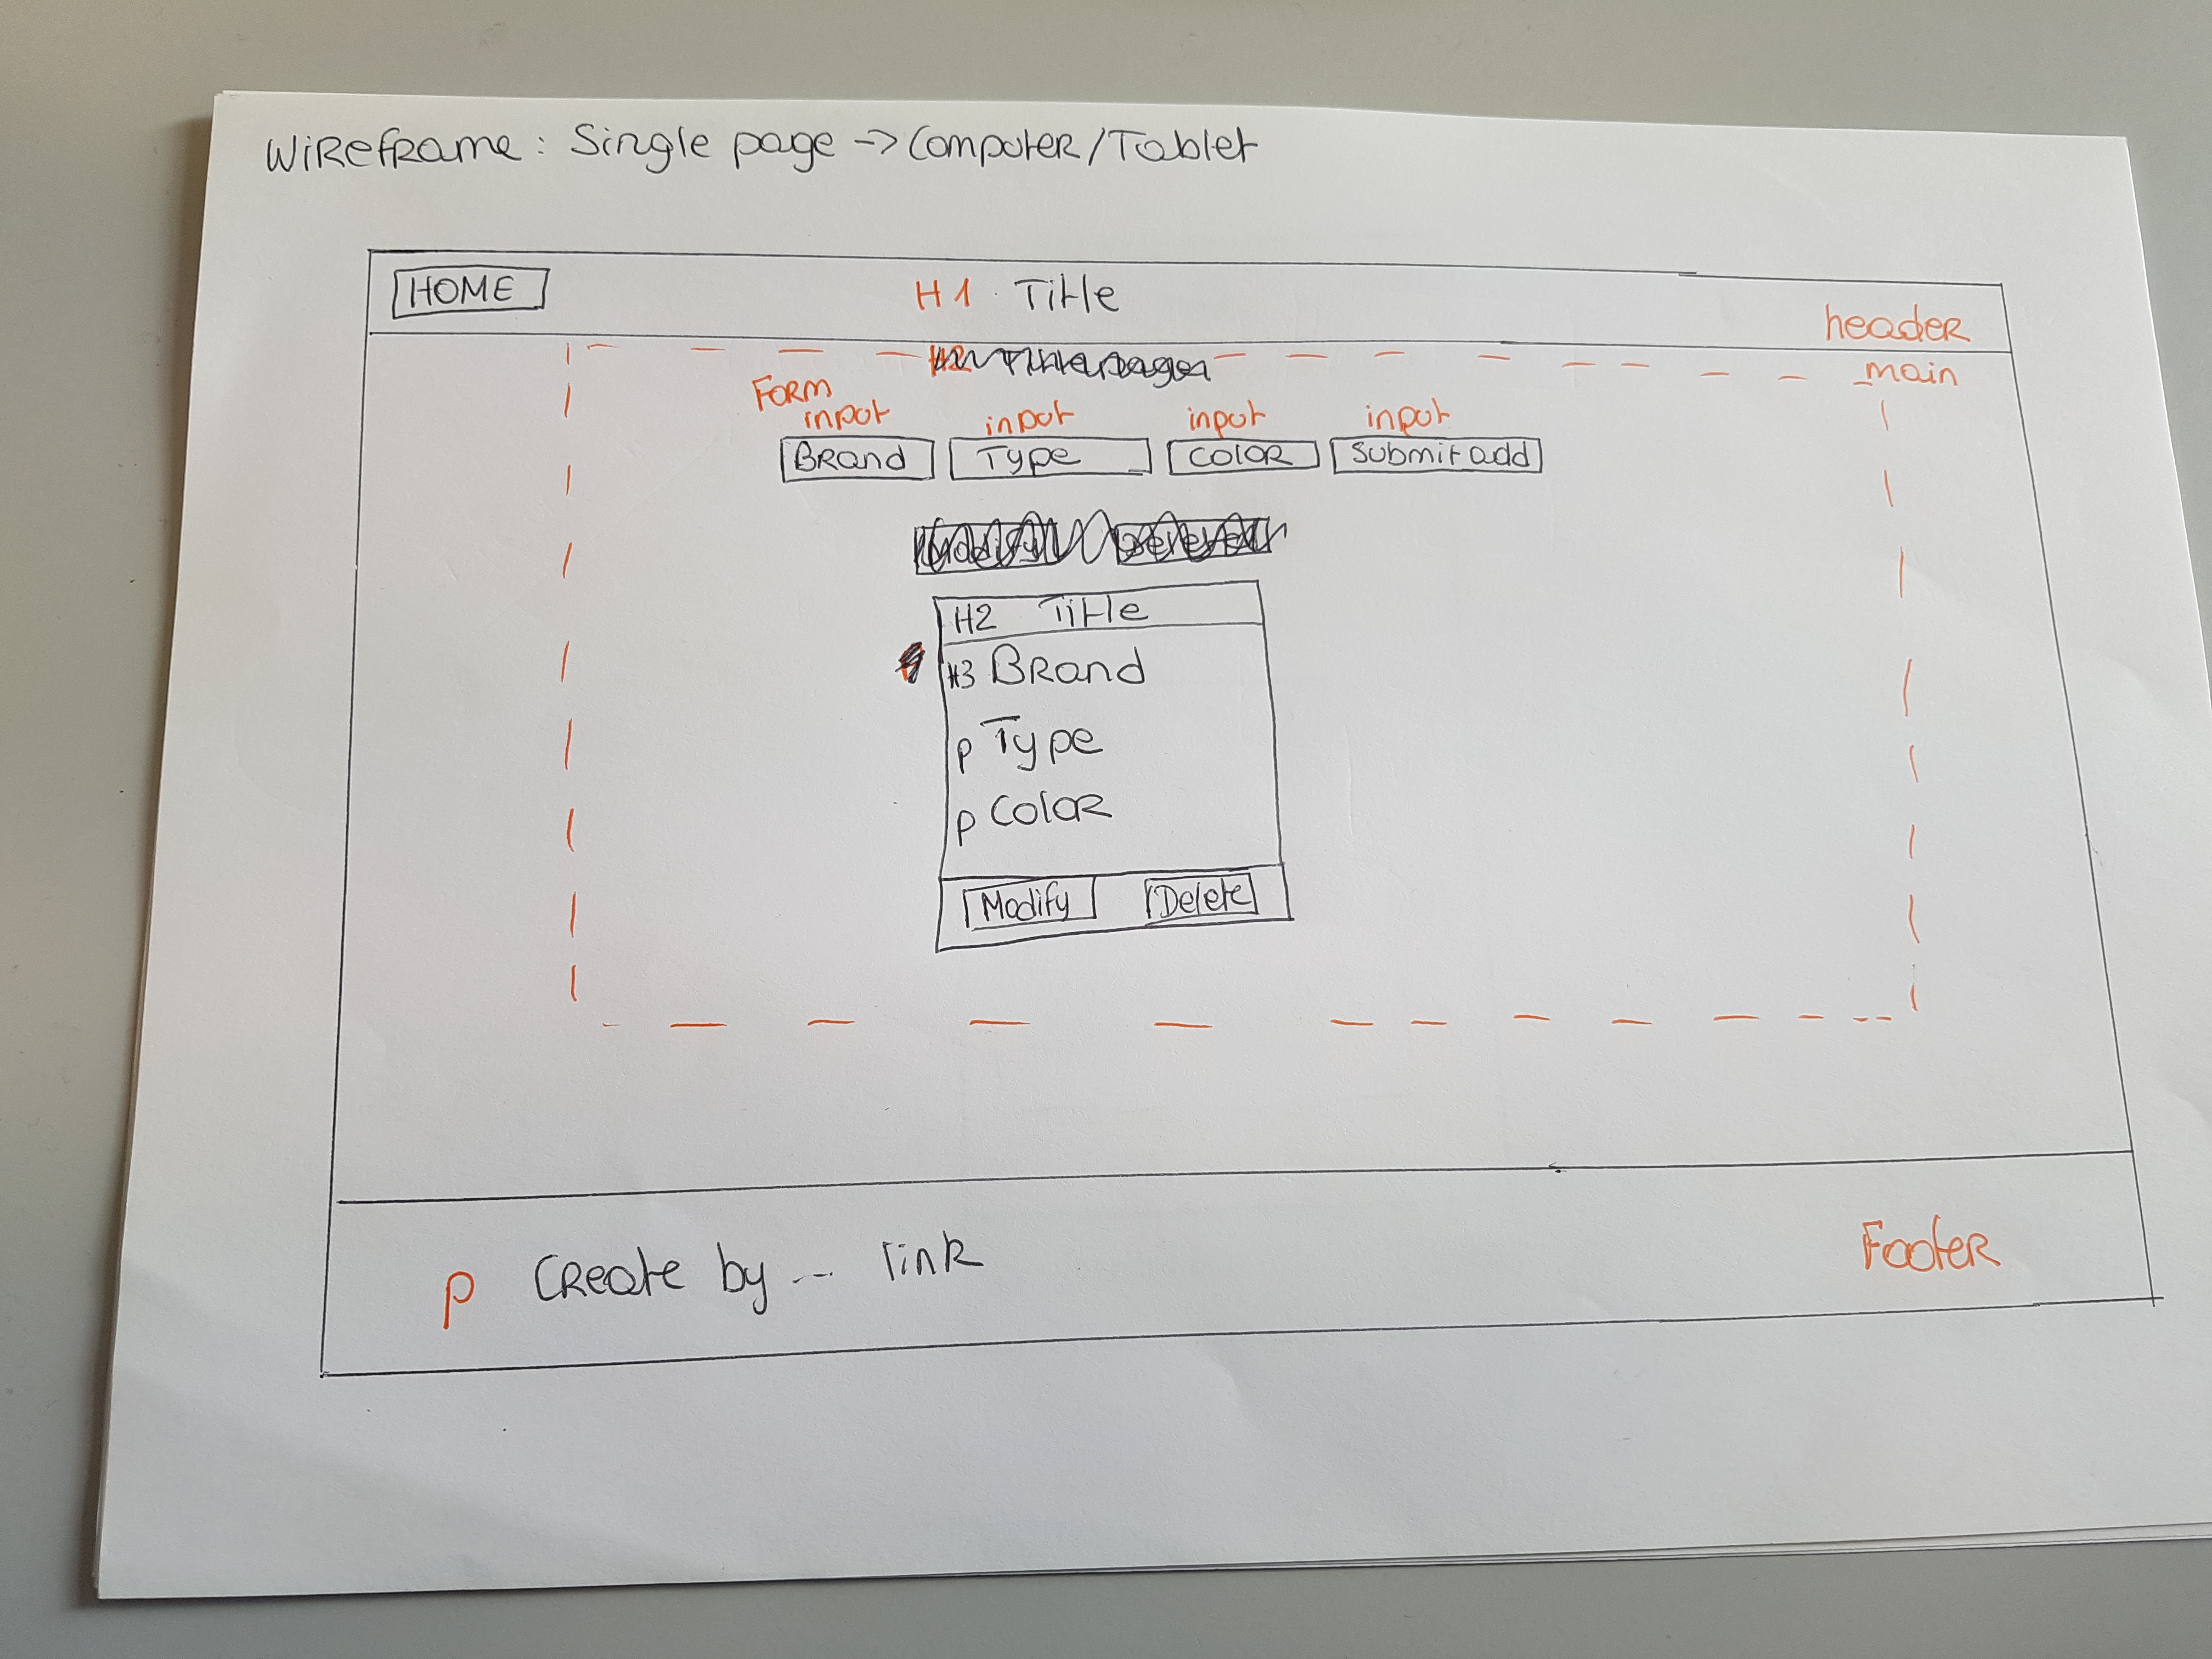 Wireframe: Single page -> Computer/Tablet
HOME
H1 Title
header
main
Form
input input input input
Brand Type Color Submit add
H2 Title
H3 Brand
p Type
p Color
Modify Delete
p Create by ... link
Footer